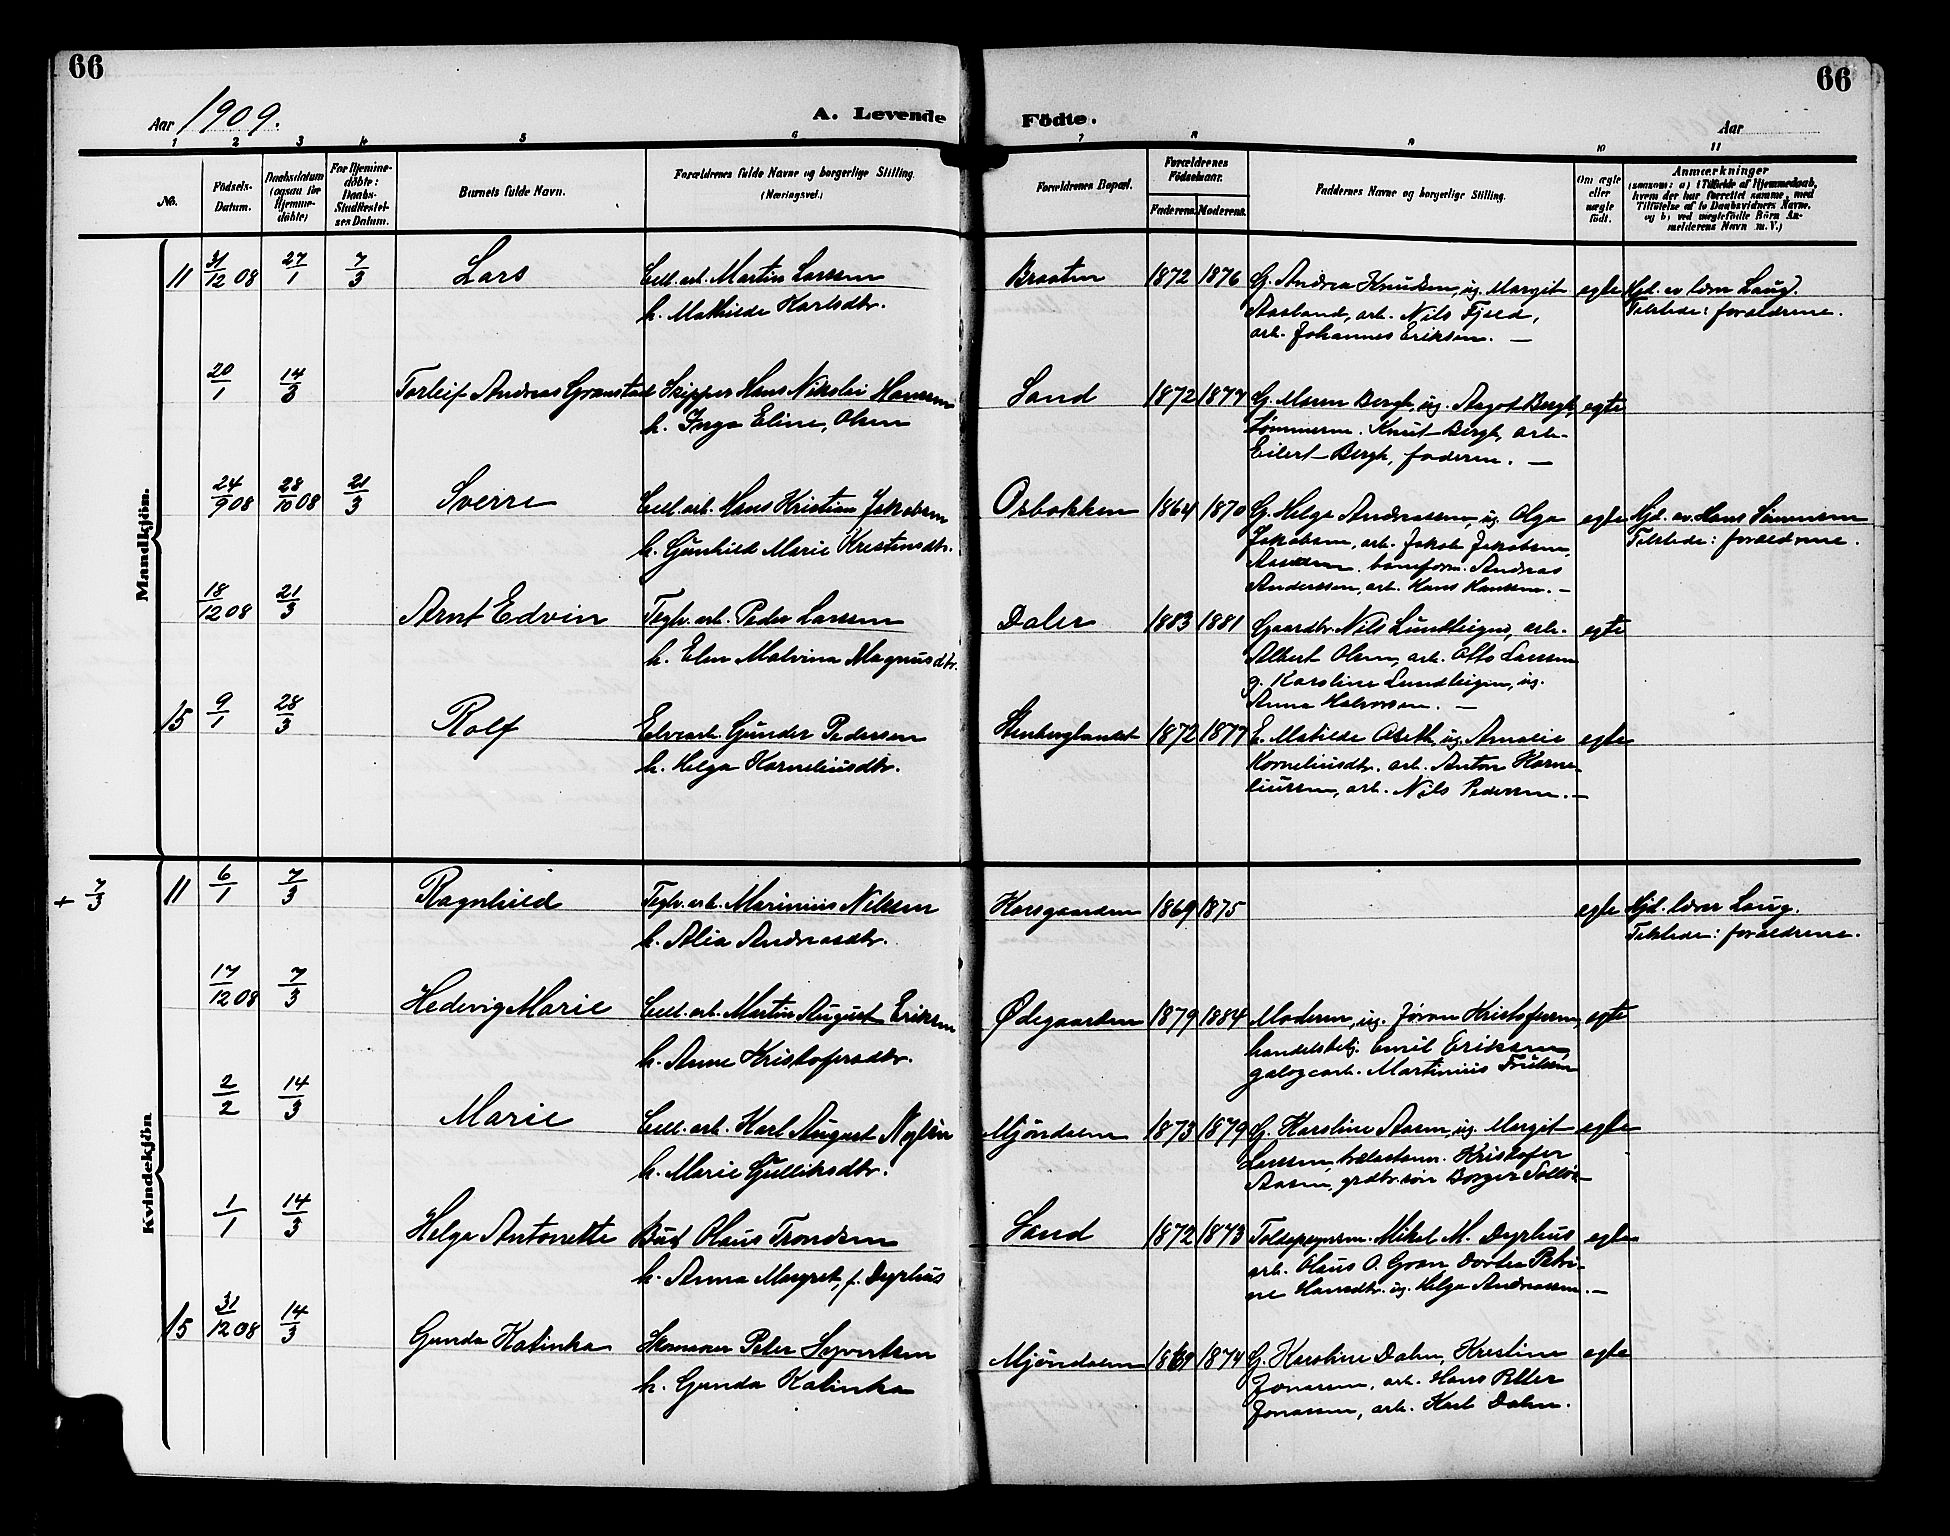 66
66
Aar 1909.
A. Levende
Födte.
Aar
1 2 3 4 5 6 7 8 9 10 11
No.
Födsels-
Datum.
Daabsdatum
(ogsaa for
Hjemme-
döbte)
For Hjemme-
döbte:
Daabs-
Stadfæstel-
ses Datum.
Barnets fulde Navn.
Forældrenes fulde Navne og borgerlige Stilling.
(Næringsvei.)
Forældrenes Bopæl.
Forældrenes
Födselsaar.
Faderens. Moderens.
Faddernes Navne og borgerlige Stilling.
Om ægte
eller
uægte
født.
Anmærkninger
(saasom: a) i Tilfælde af Hjemmedaab,
hvem der har forrettet samme, med
Tilføielse af to Daabsvidners Navne,
og b) ved uægtefødte Börn An-
melderens Navn m. V.)
Mandkjön.
11 31/12 08 27/1 7/3 Lars
Cell.arb. Martin Larssen
h. Mathilde Karlsdtr.
Braaten 1872 1876
G. Andrea Knudsen, ug. Margit
Aasland, arb. Nils Fjeld,
arb. Johannes Eriksen. —
egte
Hjd. av lærer Laug.
Tilstede: forældrene.
20/1 14/3 Torleif Andreas Granstad
Skipper Hans Nikolai Hanssen
h. Inga Eline, Olsen
Sand 1872 1877
G. Maren Bergh, ug. Aagot Bergh,
tømmerm. Knut Bergh, arb.
Eilert Bergh, faderen. —
egte
24/9 08 28/10 08 21/3 Sverre
Cell. arb. Hans Kristian Jakobsen
h. Gunhild Marie Kristensdtr.
Osbakken 1864 1870
G. Helga Andreassen, ug. Olga
Jakobsen, arb. Jakob Jakobsen,
Andreas
Anderssen, arb. Hans Hanssen. —
egte
Hjd. av Hans Simensen
Tilstede: forældrene.
18/12 08 21/3 Arnt Edvin
Teglv. arb. Peder Larssen
h. Elen Malvina Magnusdtr.
Daler 1883 1881
Gaardbr. Nils Lundteigen, arb.
Albert Olsen, arb. Otto Larssen
g. Karoline Lundteigen, ug.
Anna Halvorsen. —
egte
15 9/1 28/3 Rolf
Elvearb. Gunder Pedersen
h. Helga Korneliusdtr.
Stenberglandet 1872 1877
E. Matilde Aseth, ug. Amalie
Korneliusdtr. arb. Anton Korne-
liussen, arb. Nils Pedersen. —
egte
Kvindekjön
+ 7/3
11 6/1 7/3 Ragnhild
Teglv. arb. Marinius Nilssen
h. Alia Andreasdtr.
Horsgaarden 1869 1875
egte
Hjd. lærer Laug.
Tilstede: forældrene.
17/12 08 7/3 Hedevig Marie
Cell. arb. Martin August Eriksen
h. Anne Kristofersdtr.
Ødegaarden 1879 1884
Moderen, ug. Jøran Kristofersen,
handelsbetj. Emil Eriksen,
Martinius
egte
2/2 14/3 Marie
Cell. arb. Karl August Nylén
h. Marie Gulliksdtr.
Mjøndalen 1873 1879
G. Karoline Aasen, ug. Margit
Larssen, Kristofer
Aasen, grdbr.søn Borger
egte
1/1 14/3 Helga Antonette
Bud Olaus Trondsen
h. Anna Margret, f. Dyrhus
Sand 1872 1873
Mikel M. Dyrhus
arb. Olaus O. Gran, Dortea Petri-
ne Hansdtr. ug. Helga Andreassen. —
egte
15 31/12 08 14/3 Gunda Katinka
Skomaker Peter Syvertsen
h. Gunda Katinka
Mjøndalen 1869 1874
G. Karoline Dalen, Kristine
Jonassen, arb. Hans Petter
Jonassen, arb. Karl Dalen.
egte